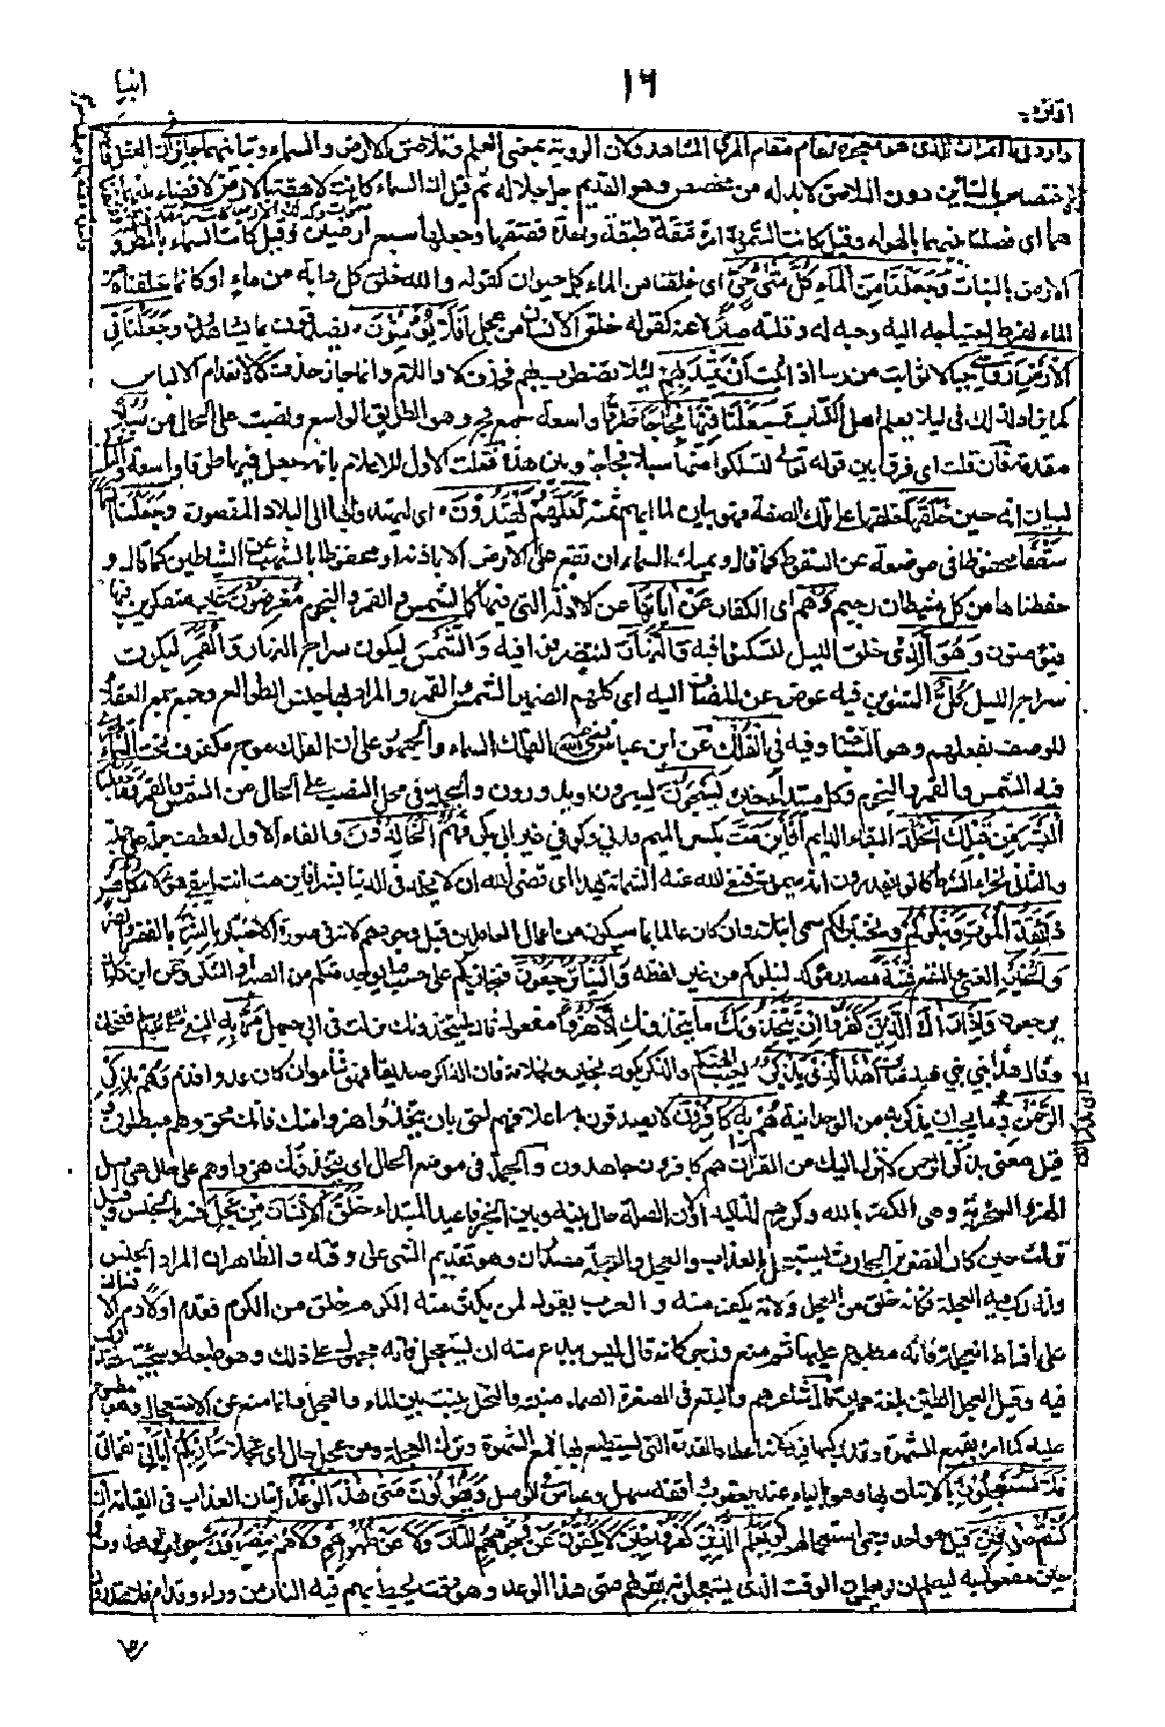 انبيا
١٦
اقترب
وارد في القرآن الذى هو معجزة فقام مقام المرئى المشاهد ولان الروية بمعنى العلم وتلاصق الارض والسماء وتباينهما جائزان فى العقل
فالاختصاص بالتباين دون التلاصق لا بد له من مخصص وهو القديم جل جلاله ثم قيل ان السماء كانت لاصقة بالارض لا فضاء بينهما
هما اى فصلنا بينهما بالهواء وقيل كانت السموات مرتتقة طبقة واحدة ففتقها وجعلها سبع ارضين وقيل كانت السماء بالمطر و
الارض بالنبات وَجَعَلْنَا مِنَ الْمَاءِ كُلَّ شَىْءٍ حَىٍّ اى خلقنا من الماء كل حيوان كقوله والله خلق كل دابة من ماء او كانما خلقناه من
الماء لفرط احتياجه اليه وحبه له وقلة صبره عنه كقوله خلق الانسان من عجل اَفَلَا يُؤْمِنُوْنَ يصدقون بما يشاهدون وَجَعَلْنَا فِى
الْاَرْضِ رَوَاسِىَ جبالا ثوابت من رسا اذا ثبت اَنْ تَمِيْدَ بِهِمْ لئلا تضطرب بهم فحذف لا واللام وانما جاز حذف لا لعدم الالباس
كما تزاد لذلك فى لئلا يعلم اهل الكتاب وَجَعَلْنَا فِيْهَا فِجَاجًا طرقا واسعة جمع فج وهو الطريق الواسع ونصب على الحال من سبلا
مقدمة فان قلت اى فرق بين قوله تعالى لتسلكوا منها سبلا فجاجا وبين هذه قلت الاول للاعلام بانه جعل فيها طرقا واسعة والثانى
لبيان انه حين خلقها خلقها على تلك الصفة فهو بيان لما ابهم ثمه لَعَلَّهُمْ يَهْتَدُوْنَ اى ليهتدوا بها الى البلاد المقصودة وَجَعَلْنَا السَّمَاءَ
سَقْفًا مَحْفُوظًا فى موضعه عن السقوط كما قال ويمسك السماء ان تقع على الارض الا باذنه او محفوظا بالشهب عن الشياطين كما قال و
حفظناها من كل شيطان رجيم وَهُمْ اى الكفار عَنْ اٰيَاتِهَا عن الادلة التى فيها كالشمس والقمر والنجوم مُعْرِضُوْنَ غير متفكرين فيها
فيؤمنون وَهُوَ الَّذِىْ خَلَقَ الليل لتسكنوا فيه وَالنَّهَارَ لتتصرفوا فيه وَالشَّمْسَ ليكون سراج النهار وَالْقَمَرَ ليكون
سراج الليل كُلٌّ التنوين فيه عوض عن المضاف اليه اى كلهم الضمير للشمس والقمر والمراد بهما جنس الطوالع وجمع جمع العقلاء
للوصف بفعلهم وهو السباحة فِى فَلَكٍ عن ابن عباس رضى الله عنه الفلك السماء والجمهور على ان الفلك موج مكفوف تحت السماء
فيه الشمس والقمر والنجوم وكل مبتدأ خبره يَسْبَحُوْنَ يسيرون او يدورون والجملة فى محل النصب على الحال من الشمس والقمر وَمَا جَعَلْنَا
لِبَشَرٍ مِنْ قَبْلِكَ الْخُلْدَ البقاء الدايم اَفَاِنْ مِتَّ بكسر الميم مدنى وكوفى غير ابى بكر فَهُمُ الْخَالِدُوْنَ والفاء الاول لعطف جملة على جملة
والثانى لجزاء الشرط كانوا يقدرون انه سيموت فنفى الله عنه الشماتة بهذا اى قضى الله ان لا يخلد فى الدنيا بشرا فان مت انت ايبقى هؤلاء كُلُّ نَفْسٍ
ذَائِقَةُ الْمَوْتِ وَنَبْلُوْكُمْ ونختبركم سمى ابتلاء وان كان عالما بما سيكون من اعمال العاملين قبل وجودهم لانه فى صورة الاختبار بِالشَّرِّ بالفقر والضر
وَالْخَيْرِ الغنى والنفع فِتْنَةً مصدر مؤكد لنبلوكم من غير لفظه وَاِلَيْنَا تُرْجَعُوْنَ فنجازيكم على حسب ما يوجد منكم من الصبر والشكر وعن ابن ذكوان
يرجعون وَاِذَا رَاٰكَ الَّذِيْنَ كَفَرُوْا اِنْ يَتَّخِذُوْنَكَ ما يتخذونك اِلَّا هُزُوًا مفعول ثان ليتخذونك نزلت فى ابى جهل مر به النبى صلى الله عليه وسلم فضحك
وقال هذا نبى بنى عبد مناف اَهٰذَا الَّذِىْ يَذْكُرُ يعيب اٰلِهَتَكُمْ والذكر يكون بخير وبخلافه فان كان الذاكر صديقا فهو ثناء وان كان عدوا فذم وَهُمْ بِذِكْرِ
الرَّحْمٰنِ بما يجب ان يذكر به من الوحدانية هُمْ كَافِرُوْنَ لا يصدقون به اصلا فهم احق بان يتخذوا هزوا منك فانك محق وهم مبطلون و
قيل معنى بذكر الرحمن بما انزل اليك من القرآن هم كافرون جاحدون والجملة فى موضع الحال اى يتخذونك هزوا وهم على حال هى اصل
الهزو والسخرية وهى الكفر بالله وكررهم للتاكيد او لان الصلة حالت بينه وبين الخبر فاعيد المبتداء خُلِقَ الْاِنْسَانُ مِنْ عَجَلٍ فسر بالجنس وقيل
نزلت حين كان النضر بن الحارث يستعجل بالعذاب والعجل والعجلة مصدران وهو تقديم الشى على وقته والظاهر ان المراد الجنس
وانه ركب فيه العجلة فكانه خلق من العجل ولانه يكثر منه والعرب تقول لمن يكثر منه الكرم خلق من الكرم فقدم اولا ذم الانسان
على افراط العجلة وانه مطبوع عليها ثم منعه وزجره كانه قال ليس ببدع منه ان يستعجل فانه مجبول على ذلك وهو طبعه وسجيته
فيه وقيل العجل الطين بلغة حمير قال شاعرهم والنبع فى الصخرة الصماء منبته والنخل ينبت بين الماء والعجل وانما منع عن الاستعجال وهو مطبوع
عليه كما امره بقمع الشهوة وقد ركبها فيه لانه اعطاه القدرة التى يستطيع بها قمع الشهوة وترك العجلة ومن عجل حال اى عجلا سَاُرِيْكُمْ اٰيَاتِىْ نقماتى
فَلَا تَسْتَعْجِلُوْنِ بالاتيان بها وهو بالياء عند يعقوب وافقه سهل وعباس فى الوصل وَيَقُوْلُوْنَ مَتٰى هٰذَا الْوَعْدُ اتيان العذاب فى القيامة اِنْ
كُنْتُمْ صٰدِقِيْنَ قيل هو احد وجهى استعجالهم لَوْ يَعْلَمُ الَّذِيْنَ كَفَرُوْا حِيْنَ لَا يَكُفُّوْنَ عَنْ وُجُوْهِهِمُ النَّارَ وَلَا عَنْ ظُهُوْرِهِمْ وَلَا هُمْ يُنْصَرُوْنَ جواب لو محذوف
حين مفعول به ليعلم اى لو يعلمون الوقت الذى يستعجلونه بقولهم متى هذا الوعد وهو وقت تحيط بهم فيه النار من وراء وقدام فلا يقدرون